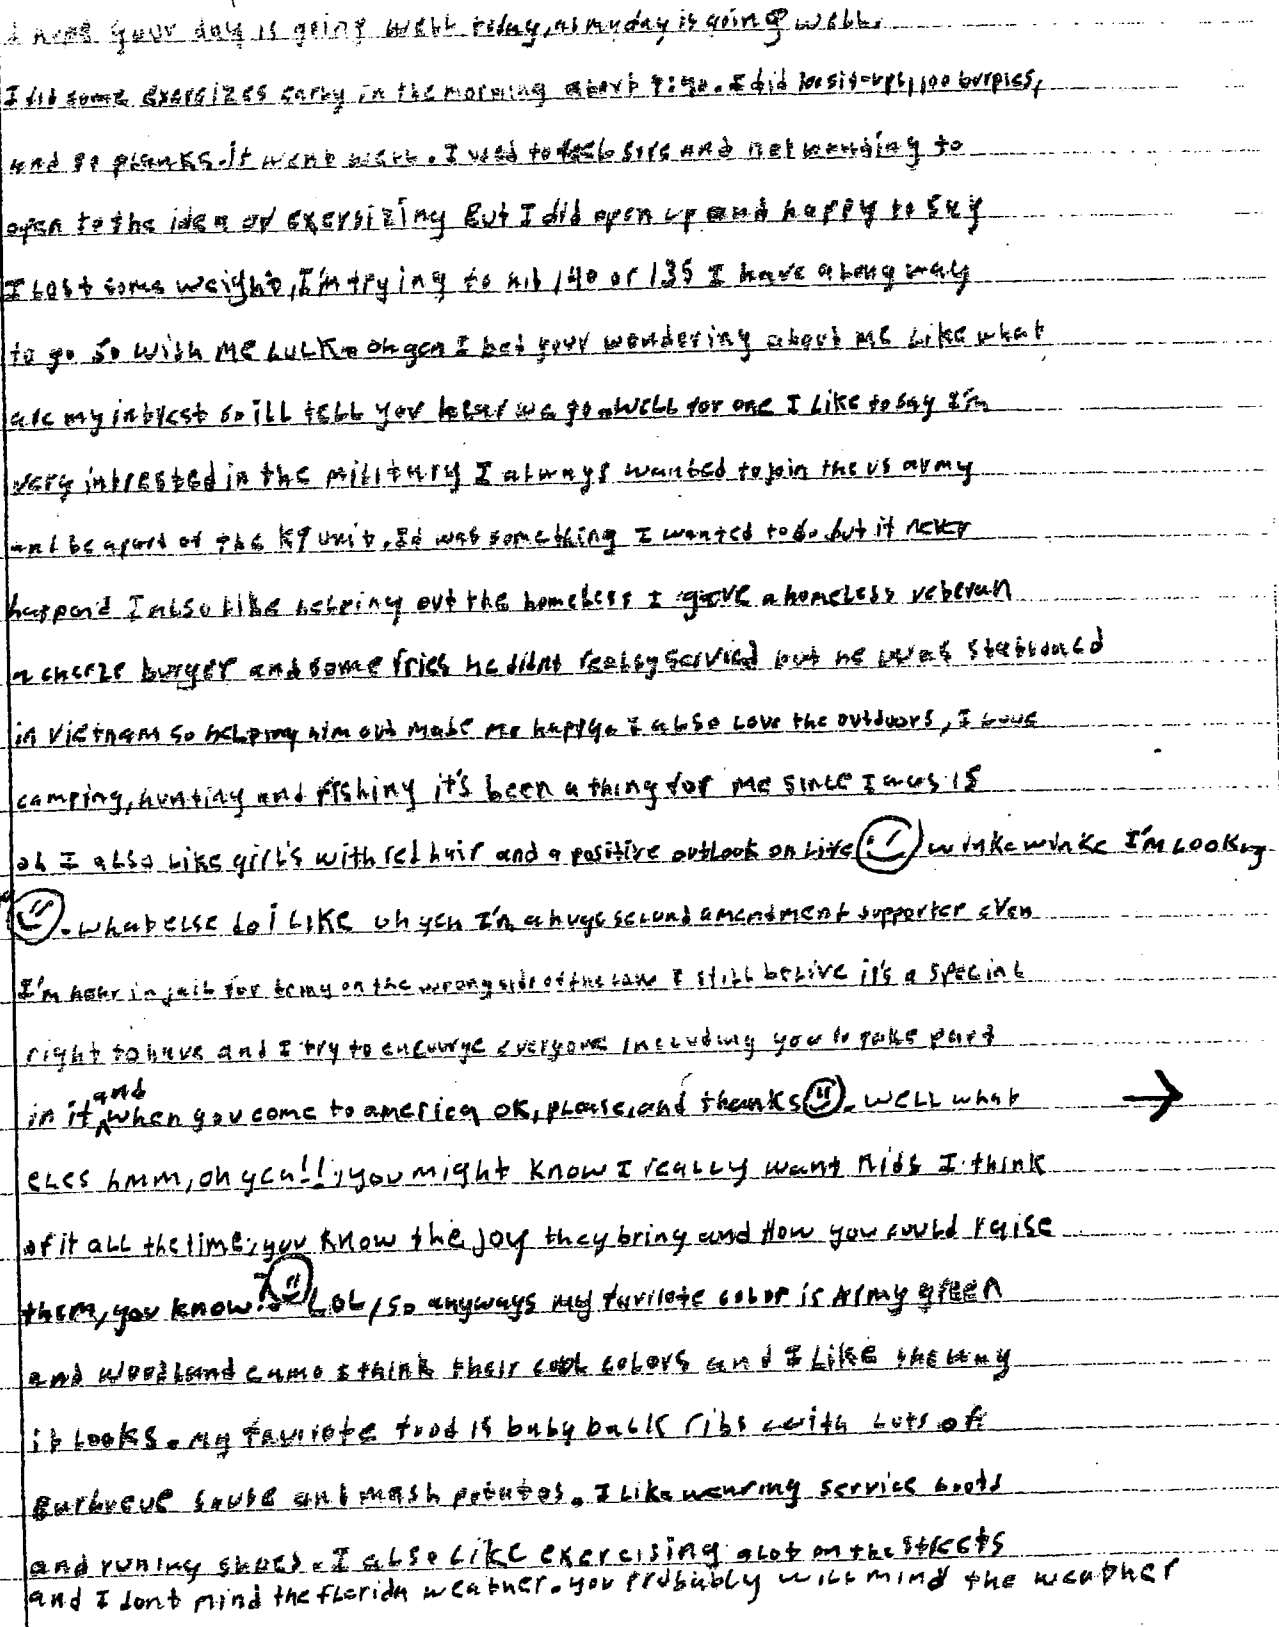 I hope your day is going well today, as my day is going well.
I did some exersizes early in the morning about 9:40. I did 100 sit-ups, 100 burpies,
and 80 planks. it went well. I used to feel sore and not wanding to
open to the idea of exersizing But I did open up and happy to say
I lost some weight, I'm trying to hit 140 or 135 I have a long way
to go so wish me luck. oh yea I bet your wondering about me like what
are my intrest so ill tell you hear we go. Well for one I like to say I'm
very intrested in the military I always wanted to join the us army
and be apart of the K9 unit. It was something I wanted to do but it never
happend I also like helping out the homeless I gave a homeless veteran
a cheeze burger and some fries he didnt really servied but he was stationed
in vietnam so helping him out made me happy. I also love the outdoors, I love
camping, hunting and fishing it's been a thing for me since I was 15
oh I also like girl's with red hair and a positive outlook on live winke winke I'm looking
. what else do i like oh yea I'm a huge second amendment supporter even
I'm hear in jail for being on the wrong side of the law I still belive it's a special
right to have and I try to encourge everyone including you to take part
in it and when you come to america OK, please, and thanks . well what →
eles hmm, oh yea!!, you might know I really want kids I think
of it all the time, you know the joy they bring and How you could raise
them, you know.? LOL, so anyways my favriote color is Army green
and woodland camo I think their cool colors and I like the way
it looks. my favriote food is baby back ribs with lots of
Barbecue sause and mash potatos. I like wearing service boots
and runing shoes. I also like exercising alot on the streets
and I dont mind the florida weather. you probably will mind the weather